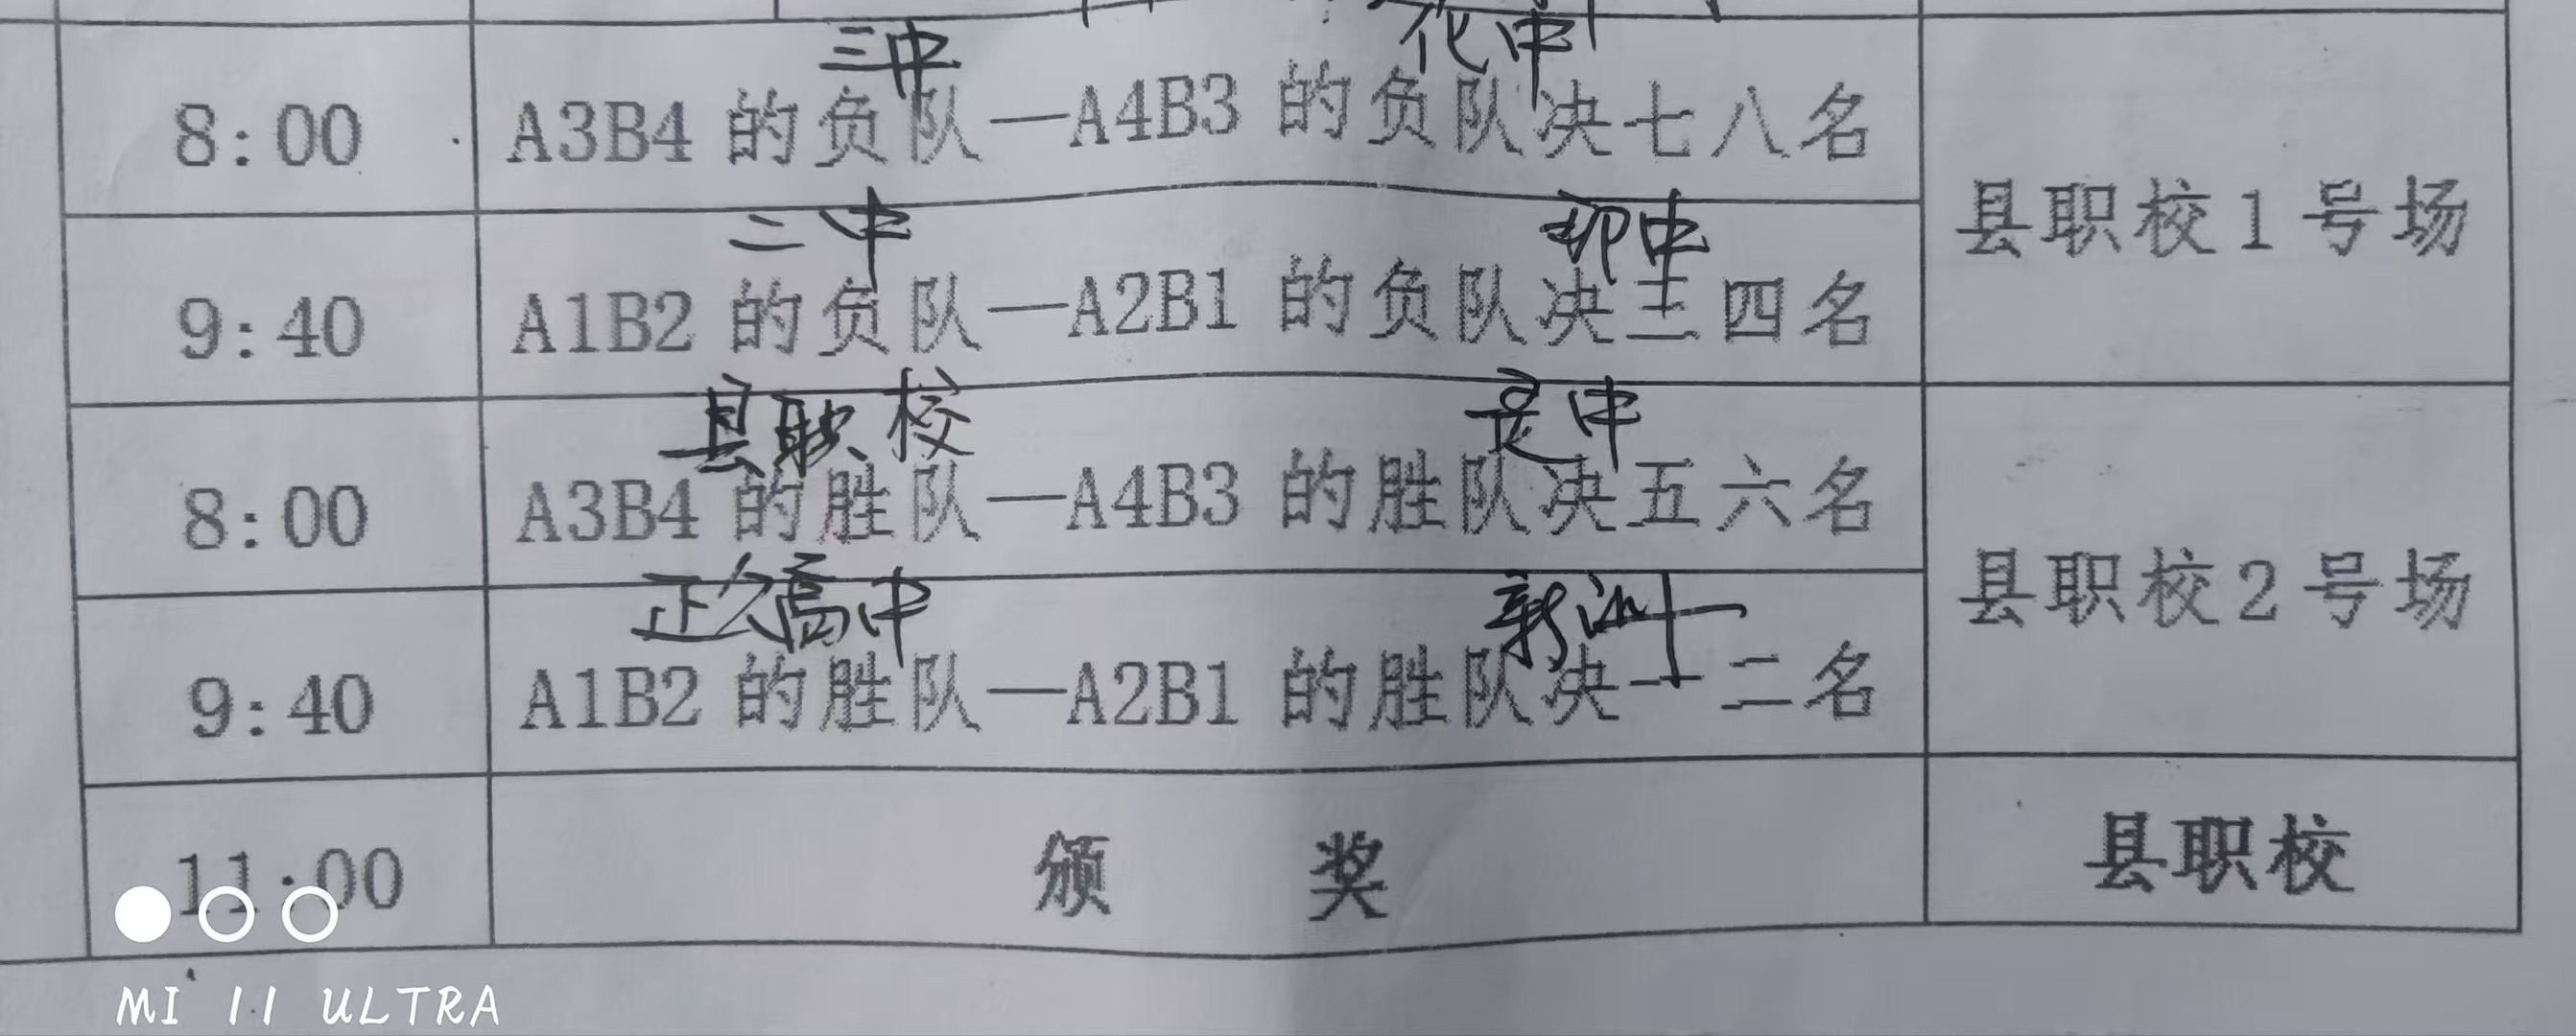 三中 化中
8:00 A3B4 的负队—A4B3 的负队决七八名
县职校1号场
二中 柳中
9:40 A1B2 的负队—A2B1 的负队决三四名
县职校 定中
8:00 A3B4 的胜队—A4B3 的胜队决五六名
县职校2号场
正久高中
9:40 A1B2 的胜队—A2B1 的胜队决一二名
11:00 颁 奖 县职校
MI 11 ULTRA